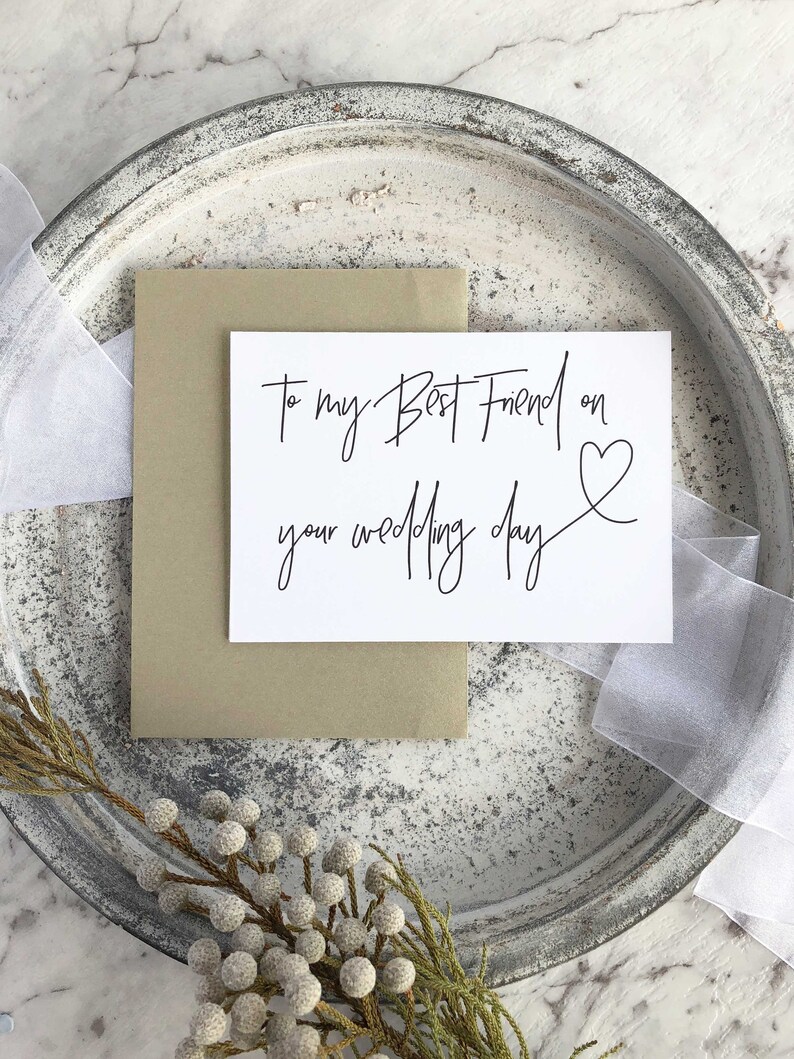 to my Best Friend on
your wedding day